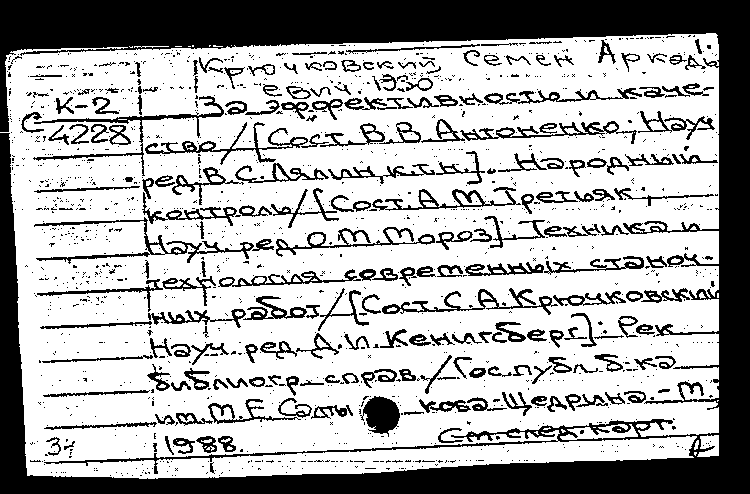 1.
Крючковский, Семен Аркадь
евич. 1930
К-2 За эффективность и каче-
С 4228
ство/[Сост. В.В. Антоненко; Науч
ред. В.С. Лялин, к.т.н.]. Народный
контроль/[Сост. А.М. Третьяк;
Науч. ред. О.М. Мороз]. Техника и
технология современных станоч-
ных работ/[Сост. С.А. Крючковский
Науч. ред. Д.И. Кенигсберг]: Рек
библиогр. справ./Гос. публ. б-ка
им. М.Е. Салтыкова-Щедрина. - М.;
34 1988. См. след. карт.